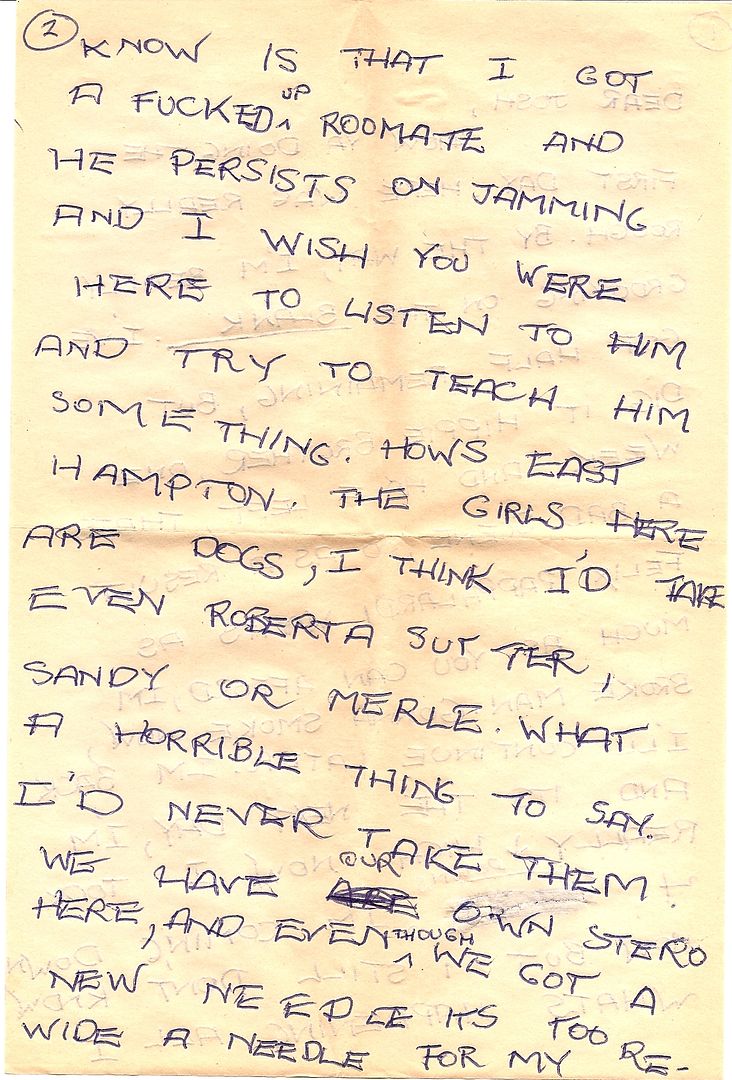 2 KNOW IS THAT I GOT
A FUCKED UP ROOMATE AND
HE PERSISTS ON JAMMING
AND I WISH YOU WERE
HERE TO LISTEN TO HIM
AND TRY TO TEACH HIM
SOMETHING. HOWS EAST
HAMPTON. THE GIRLS HERE
ARE DOGS, I THINK I'D TAKE
EVEN ROBERTA SUTTER,
SANDY OR MERLE. WHAT
A HORRIBLE THING TO SAY.
I'D NEVER TAKE THEM.
WE HAVE OUR OWN STERO
HERE, AND EVEN THOUGH WE GOT A
NEW NEEDLE ITS TOO
WIDE A NEEDLE FOR MY RE-